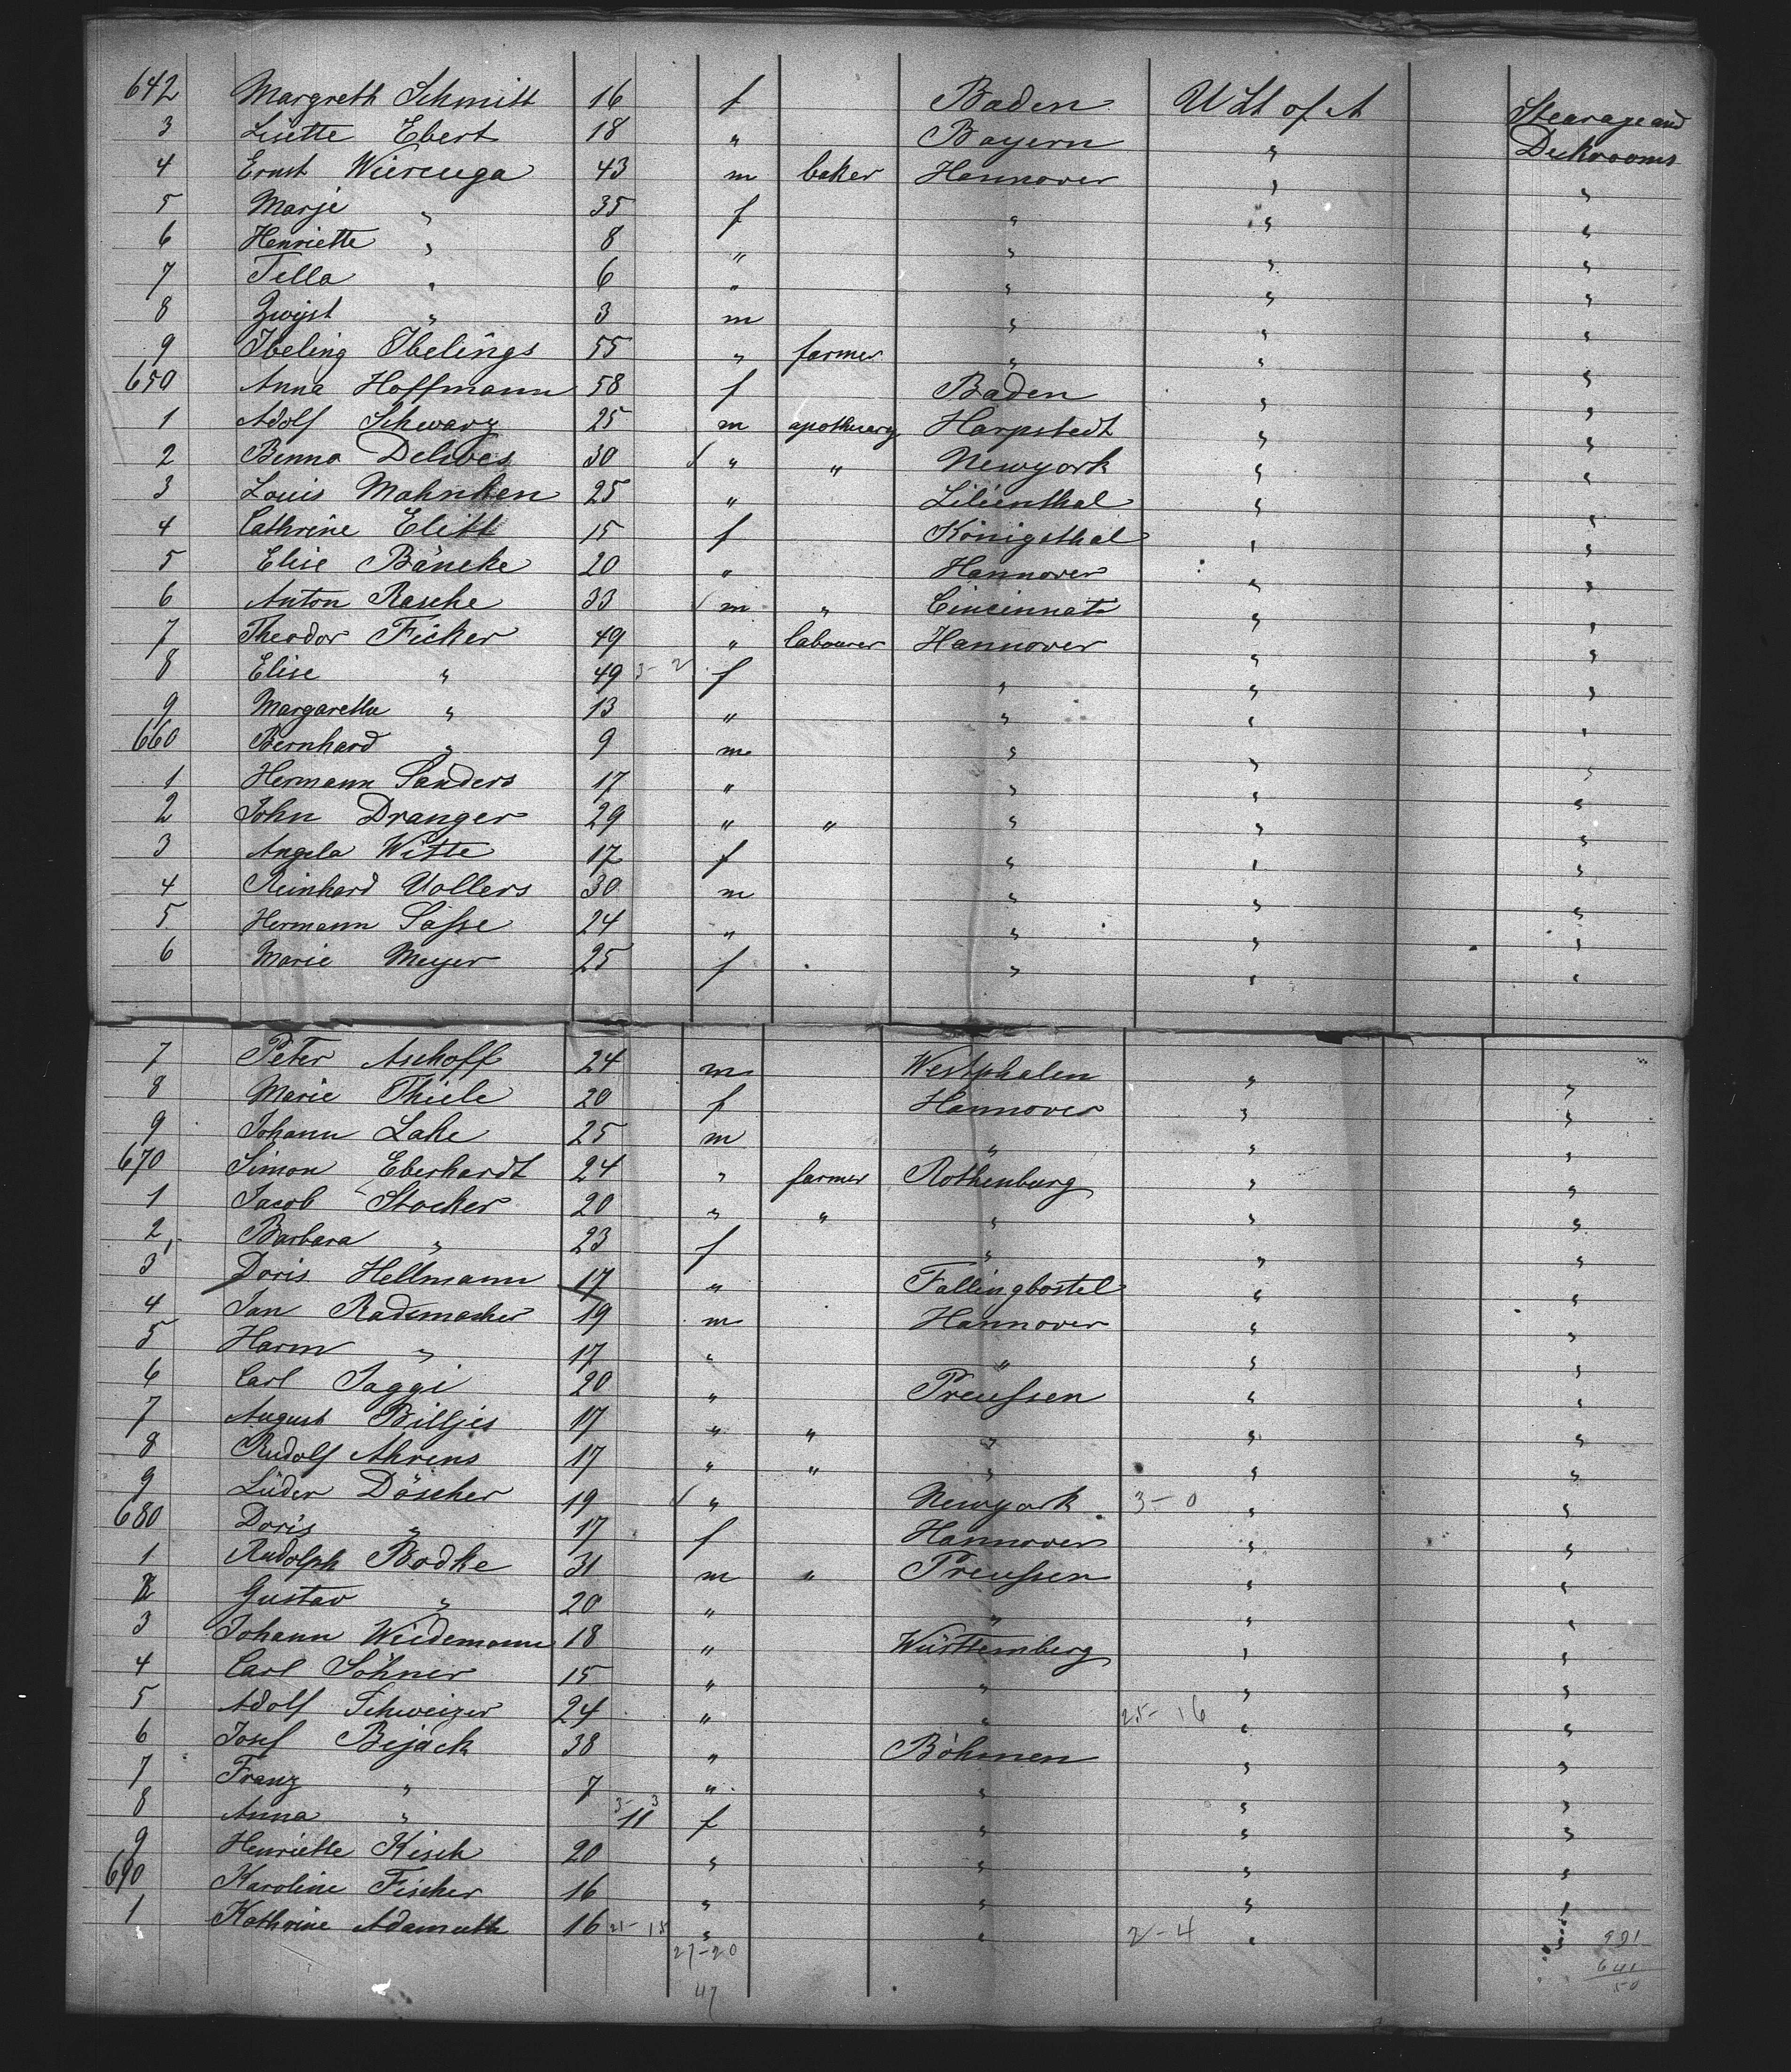 642 Margreth Schmitt 16 f Baden U St of A Stearage and
3 Lisette Ebert 18 " Bayern " Deckrooms
4 Ernst Wieruuga 43 m baker Hannover " "
5 Marje " 35 f " " "
6 Henriette " 8 " " " "
7 Tella " 6 " " " "
8 3 m " " "
9 Ibeling Ibelings 55 " farmer " " "
650 Anna Hoffmann 58 f Baden " "
1 Adolf Schwarz 25 m apothecary Harpstedt " "
2 Benno Delwes 30 " " Newyork " "
3 Louis Mahnken 25 " Lilienthal " "
4 Cathrine Elitt 15 f Königsthal " "
5 Elise Bäncke 20 " Hannover " "
6 Anton Rasche 33 m " Cincinnati " "
7 Theodor Ficker 49 " labourer Hannover " "
8 Elise " 49 3-2 f " " "
9 Margaretha " 13 " " " "
660 Bernhard " 9 m " " "
1 Hermann Sanders 17 " " " "
2 John Dranger 29 " " " " "
3 Angela Witte 17 f " " "
4 Reinhard Vollers 30 m " " "
5 Hermann Saſse 24 " " " "
6 Marie Meyer 25 f " " "
7 Peter Aschoff 24 m Westphalen " "
8 Marie Thiele 20 f Hannover " "
9 Johann Lahe 25 m " " "
670 Simon Eberhardt 24 " farmer Rothenburg " "
1 Jacob Stocker 20 " " " " "
2 Barbara " 23 f " " "
3 Doris Hellmann 17 " Fallingbostel " "
4 Jan Radsmacher 19 m Hannover " "
5 Harm " 17 " " " "
6 Carl Jaggi 20 " Preuſsen " "
7 August Billjes 17 " " " " "
8 Rudolf Ahrens 17 " " " " "
9 Lüder Döscher 19 " Newyork 3-0 " "
680 Doris " 17 f Hannover " "
1 Rudolph Bodke 31 m " Preuſsen " "
2 Gustav " 20 " " " "
3 Johann Wiedemann 18 " Württemberg " "
4 Carl Söhner 15 " " " "
5 Adolf Schweizer 24 " " 25-16 " "
6 Josef Bejack 38 " Böhmen " "
7 Franz " 7 " " " "
8 Anna " 3-3 11 f " " "
9 Henriette Kisch 20 " " " "
690 Karoline Fischer 16 " " " "
1 Kathrine Adamuth 16 21-18 " " 2-4 " "
27-20
47
691
641
50